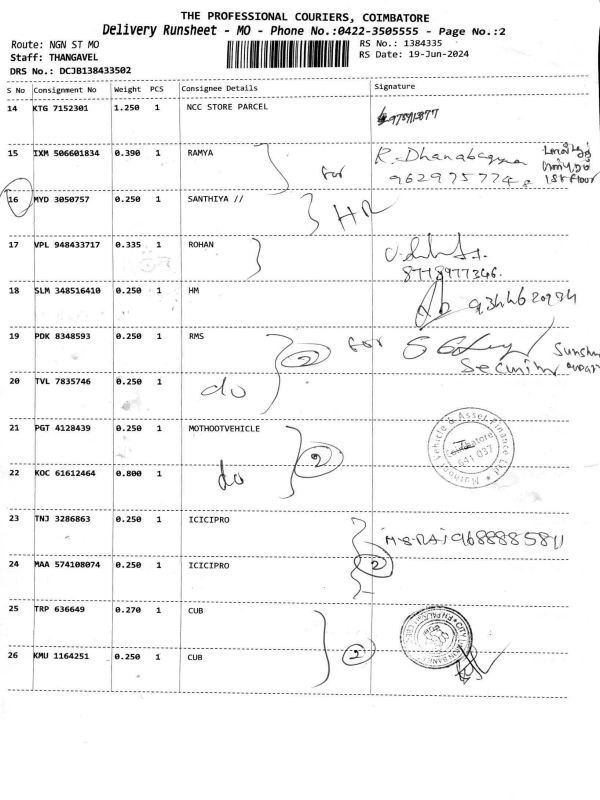 THE PROFESSIONAL COURIERS, COIMBATORE
Delivery Runsheet - MO - Phone No.:0422-3505555 - Page No.:2
Route: NGN ST MO
RS No.: 1384335
Staff: THANGAVEL
RS Date: 19-Jun-2024
DRS No.: DCJB138433502
S No Consignment No Weight PCS Consignee Details Signature
14 KTG 7152301 1.250 1 NCC STORE PARCEL
15 IXM 506601834 0.390 1 RAMYA
for R. Dhanabagyam
962975774 1st floor
16 MYD 3050757 0.250 1 SANTHIYA //
HR
17 VPL 948433717 0.335 1 ROHAN
8778977346.
18 SLM 348516410 0.250 1 HM
9344620934
19 PDK 8348593 0.250 1 RMS
2 for
Security
20 TVL 7835746 0.250 1
do
21 PGT 4128439 0.250 1 MOTHOOTVEHICLE
2
Muthoot Vehicle & Asset Finance Ltd
Coimbatore
641 037
22 KOC 61612464 0.800 1
do
23 TNJ 3286863 0.250 1 ICICIPRO
9688885811
24 MAA 574108074 0.250 1 ICICIPRO
2
25 TRP 636649 0.270 1 CUB
26 KMU 1164251 0.250 1 CUB
2